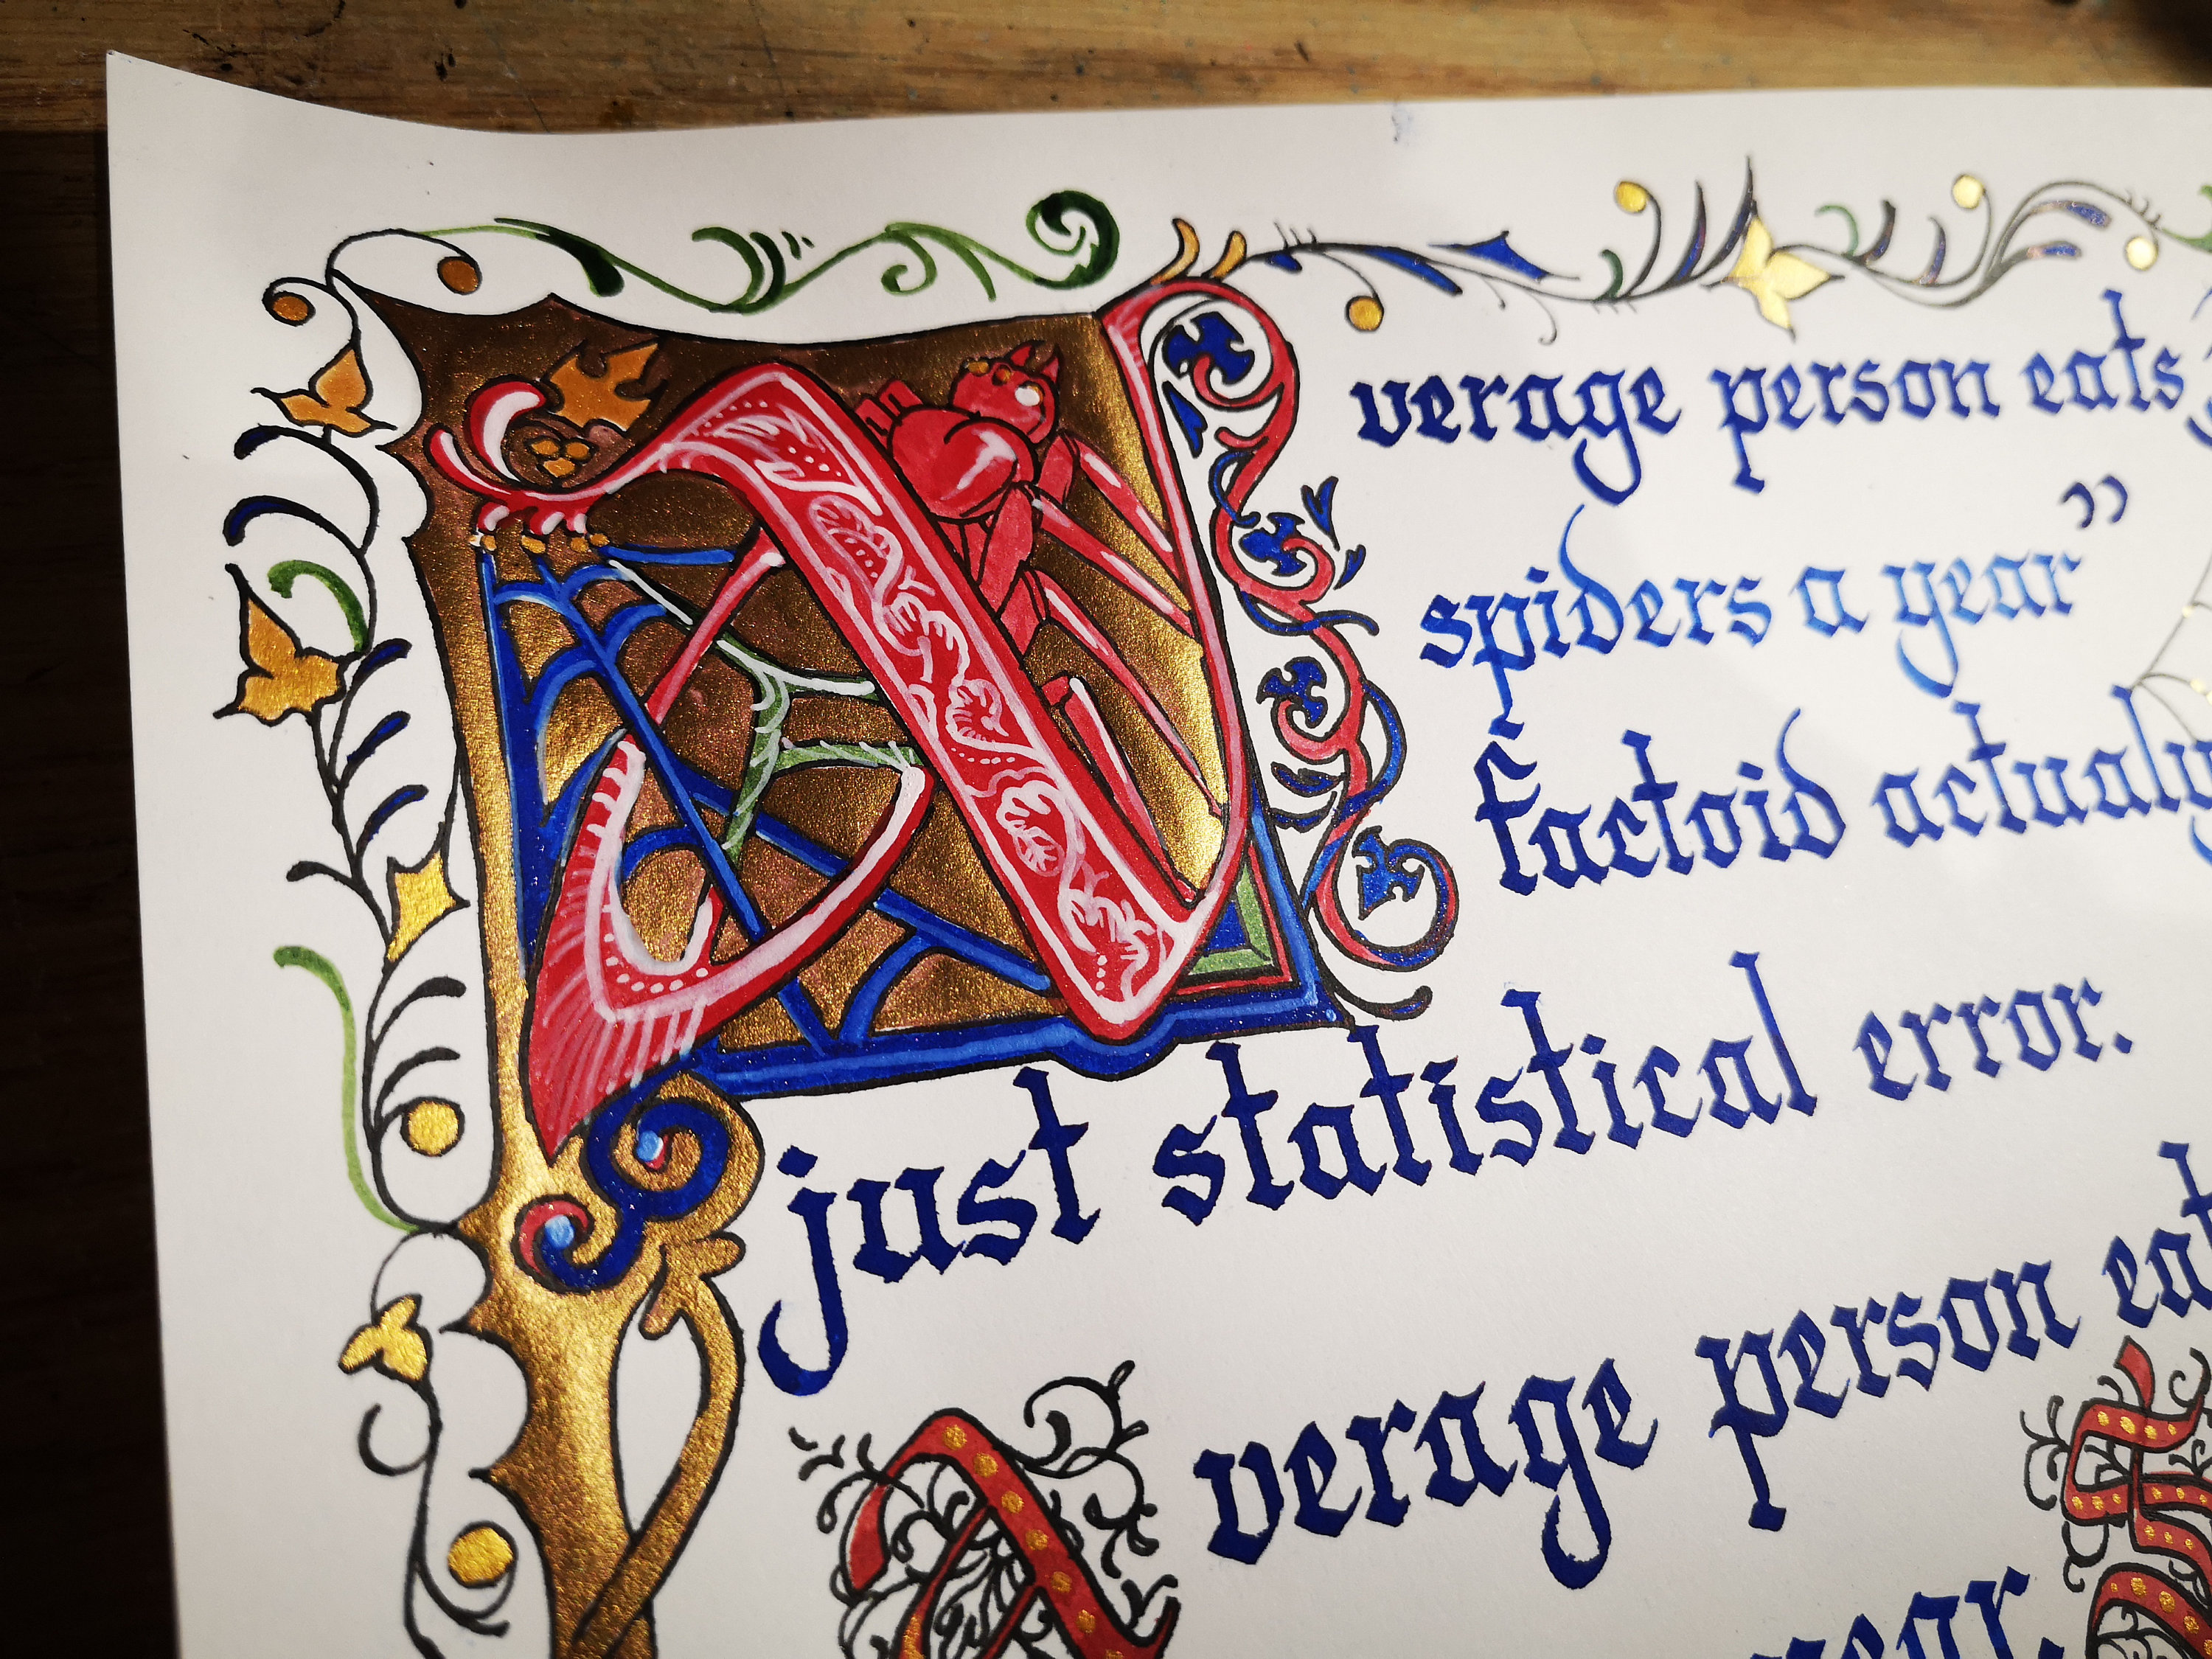 Average person eats
spiders a year”
factoid actualy
just statistical error.
Average person eat
year.